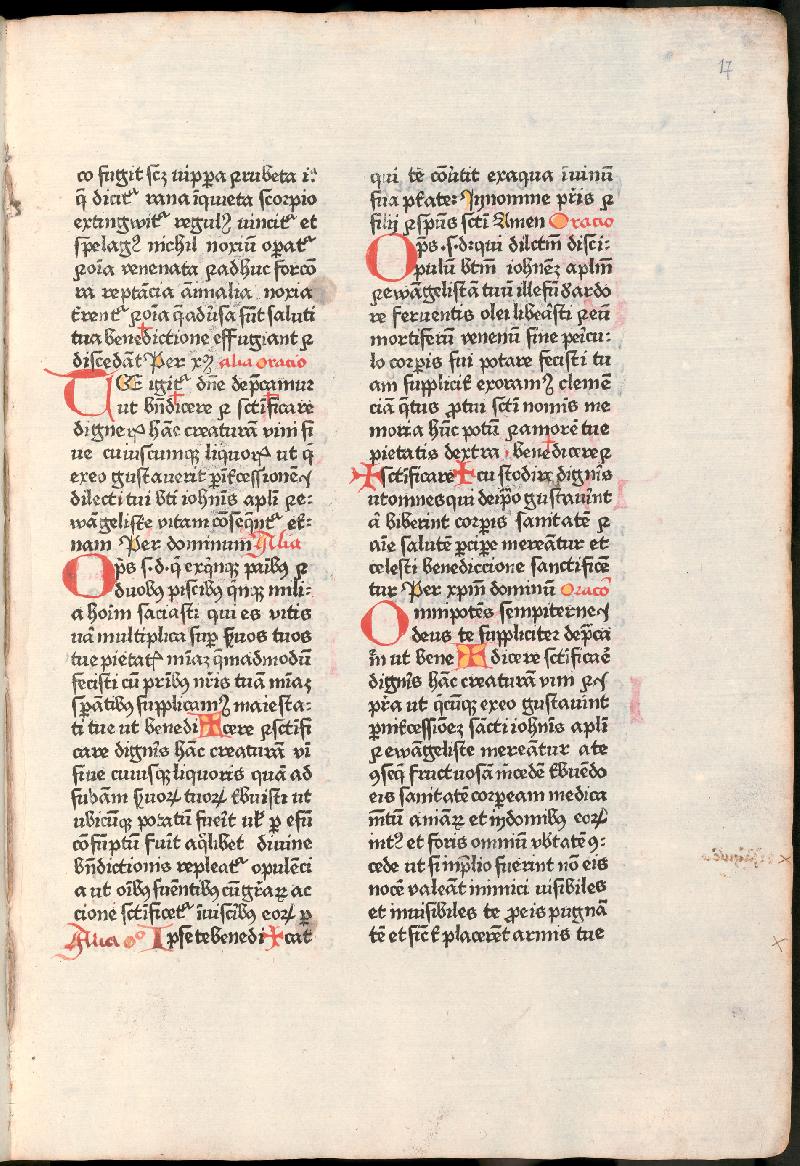 17
co fugit scꝫ uippa ꝛ rubeta i:
q̄ dicit᷑ rana īquieta scorpio
extingwit᷑ regulꝰ uincit᷑ et
spelagꝰ nichil noxiū oꝑat᷑
ꝛ oīa venenata ꝛ adhuc forcō
ra reptācia aīmalia noxia
ꝛ oīa q̄ aduˀsa sūt saluti
tua benedictione effugiant ꝛ
discedāt Per xꝫ alia oracio
TE igit᷑ dn̄e dep̄camur
ut bn̄dicere ꝛ sct̄ificare
digneris hāc creaturā vini si
ue cuiuscumqꝫ liquorꝭ ut q̄
exeo gustauerit
dilecti tui bt̄i iohānis apl̄i ꝛ e:
wāgeliste vitam cōseq̄nt᷑ et̄:
nam Per dominum Alia
Op̄s s. d. q̄ ex qnqꝫ panibꝰ ꝛ
duobꝰ piscibꝰ qnqꝫ mili:
a hoīm saciasti qui es vitis
uā multiplica suꝑ ẜuos tuos
tue pietatꝭ mīaꝫ q̄madmodū
fecisti cū pr̄ibꝰ nr̄is tuā mīaꝫ
sꝑātibꝰ supplicamꝰ maiesta:
ti tue ut benedi✠cere ꝛ sct̄ifi
care dignīs hāc creaturā vi
siue cuiusqꝫ liquoris quā ad
ẜuorꝝ tuorꝝ tbuisti ut
ubicūqꝫ potatū fueīt ut̄ ꝑ esū
cōsūptū fuīt aq̄libet diuine
bn̄dictionis repleat᷑ opulēci
a ut oībꝰ suēntibꝰ cū gr̄aꝝ ac
cione sct̄ificet᷑ ī uiscibꝰ eorꝝ ꝑ
Alia oo Ipse te benedi✠cat
qui te cōuˀtit ex aqua ī uinū
sua ptate: In nomine pr̄is ꝛ
filij ꝛ spūs sct̄i Amen Oracio
Op̄s .s. d: qui dilctm̄ disci:
pulū bt̄m iohnēꝫ apl̄m
ꝛ ewāgelistā tuū illesū ꝛ ardo
re feruentis olei libeāsti ꝛ eū
mortiferū venenū sine peīcu:
lo corꝑis sui potare fecisti tu
am suppliciter exoramꝰ clemē
ciā q̄tus ꝓ tui sct̄i nomīs me
moria hūc potū ꝛ amorē tue
pietatis dextra benedicere ꝛ
✠ sct̄ificare ✠ custodire dignīs
ut omnes qui de ip̄o gustauīnt
a᷑ biberint corꝑis sanitatē ꝛ
aīe salutē ꝑcipe mereātur et
celesti benediccione sanctificē
tur Per xpm̄ dominū Oracō
Omnipotēs sempiterne
deus te suppliciter dep̄ca
m̄ ut bene ✠ dicere sct̄ificaē
dignīs hāc creaturā vini ꝛ
pr̄a ut q̄cūqꝫ ex eo gustauīnt
ꝑ īnt̄cessionēꝫ sāctī iohānis apl̄i
ꝛ ewāgeliste mereātur a te
ꝯseq̄ fructuosā mcedē tbuēdo
eis sanitatē corꝑeam medica
mētū aīarꝝ et in domibꝰ eorꝝ
intꝰ et foris omniū vbtatē ꝯ:
cede ut si in p̄lio fuerint nō eis
nocē valeāt inimici uisibiles
et inuisibiles te ꝓ eis pugnā
tē et sic t̄ placerēt armis tue